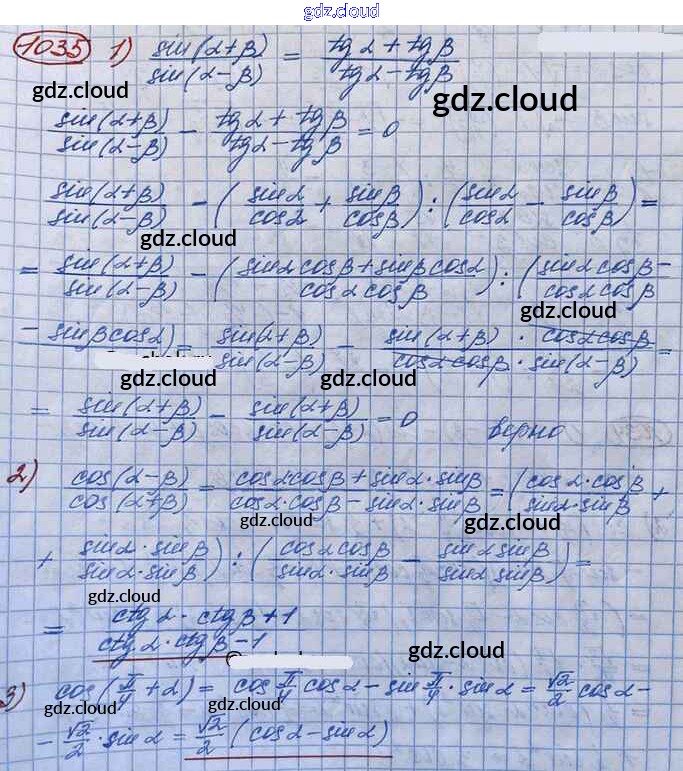 gdz.cloud
1035 1) sin(α+β)/sin(α−β) = (tgα + tgβ)/(tgα − tgβ)
gdz.cloud gdz.cloud
sin(α+β)/sin(α−β) − (tgα + tgβ)/(tgα − tgβ) = 0
sin(α+β)/sin(α−β) − (sinα/cosα + sinβ/cosβ) : (sinα/cosα − sinβ/cosβ) =
gdz.cloud
= sin(α+β)/sin(α−β) − ((sinα cosβ + sinβ cosα)/(cosα cosβ)) : (sinα cosβ −/cosα cosβ
gdz.cloud
− sinβ cosα) = sin(α+β)/sin(α−β) − (sin(α+β) · cosα cosβ)/(cosα cosβ · sin(α−β)) =
gdz.cloud gdz.cloud
= sin(α+β)/sin(α−β) − sin(α+β)/sin(α−β) = 0 верно
2) cos(α−β)/cos(α+β) = (cosα·cosβ + sinα·sinβ)/(cosα·cosβ − sinα·sinβ) = (cosα·cosβ/sinα·sinβ +
gdz.cloud gdz.cloud
+ sinα·sinβ/sinα·sinβ) : (cosα cosβ/sinα·sinβ − sinα sinβ/sinα sinβ) =
gdz.cloud
= (ctgα · ctgβ + 1)/(ctgα · ctgβ − 1)
gdz.cloud
3) cos(π/4 + α) = cos π/4 cosα − sin π/4 · sinα = √2/2 cosα −
gdz.cloud gdz.cloud
− √2/2 · sinα = √2/2 (cosα − sinα)